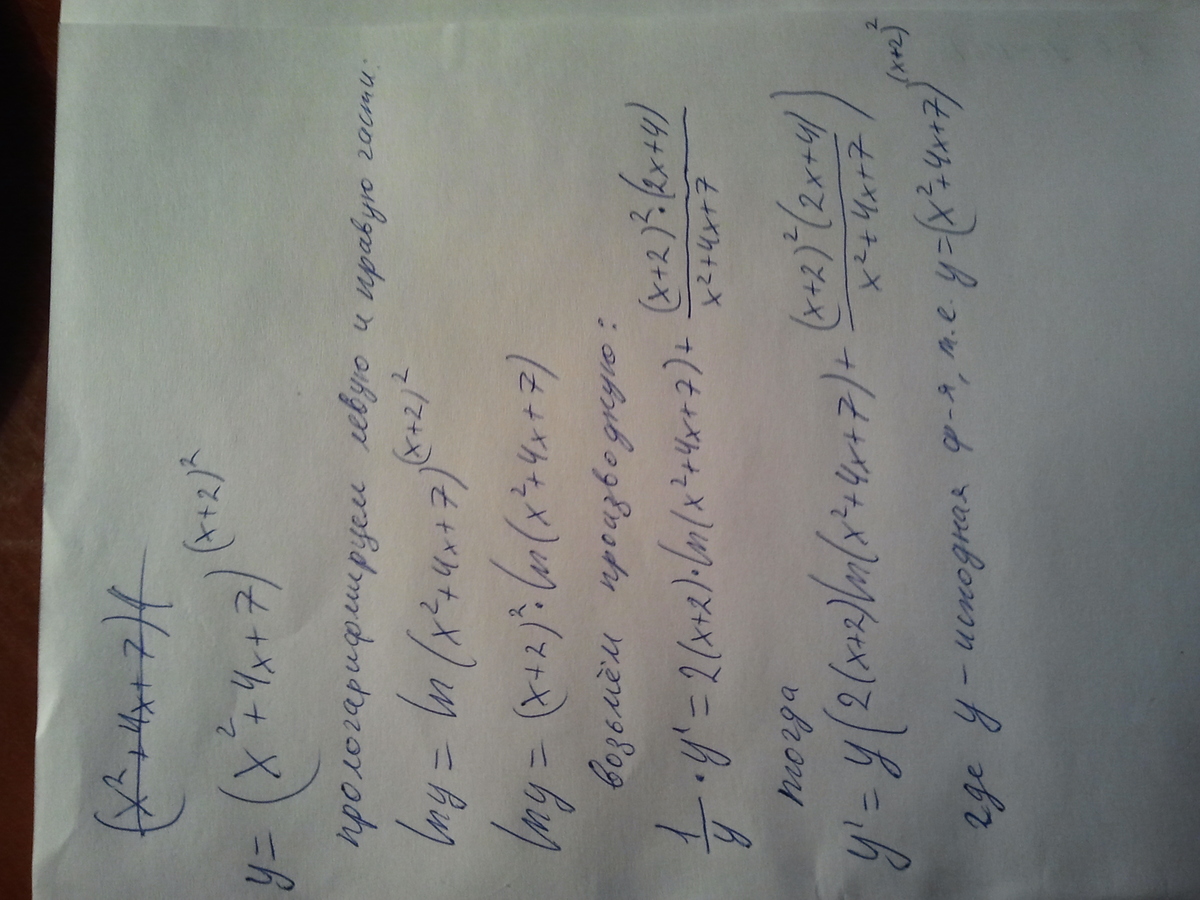 (x² + 4x + 7)
y = (x² + 4x + 7)^(x+2)²
прологарифмируем левую и правую части.
ln y = ln (x² + 4x + 7)^(x+2)²
ln y = (x+2)² · ln (x² + 4x + 7)
возьмём производную:
1/y · y' = 2(x+2) · ln(x² + 4x + 7) + (x+2)² · (2x+4) / x² + 4x + 7
тогда
y' = y (2(x+2) ln(x² + 4x + 7) + (x+2)² (2x+4) / x² + 4x + 7)
где y – исходная ф-я, т.е. y = (x² + 4x + 7)^(x+2)²